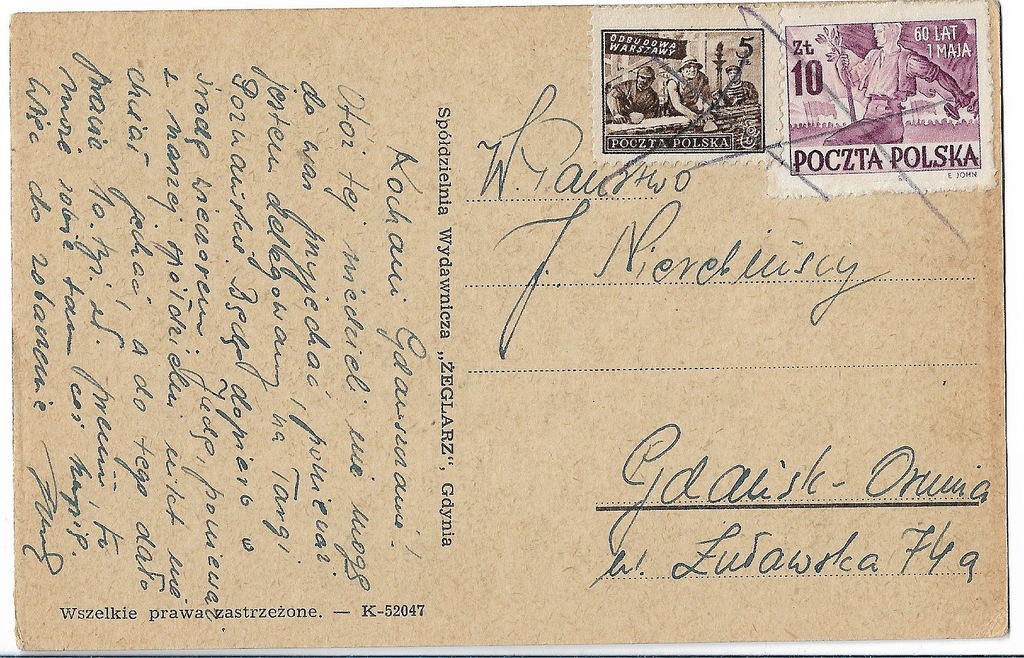 Kochani Gdańszczanie!
Otóż tej niedzieli nie mogę
do was przyjechać, ponieważ
jestem delegowany na Targi
Poznańskie. Będę dopiero w
środę wieczorem. Jadę, ponieważ
z naszej spółdzielni nikt nie
chciał jechać a do tego dało
na to. zł. premii to
może sobie tam coś kupię.
Więc do zobaczenia
Spółdzielnia Wydawnicza „ŻEGLARZ”, Gdynia
Wszelkie prawa zastrzeżone. — K-52047
ODBUDOWA
WARSZAWY
5
ZŁ
POCZTA POLSKA
60 LAT
1 MAJA
ZŁ
10
POCZTA POLSKA
E. JOHN
W. Państwo
J. Nierebińscy
Gdańsk-Orunia
ul. Żuławska 74a